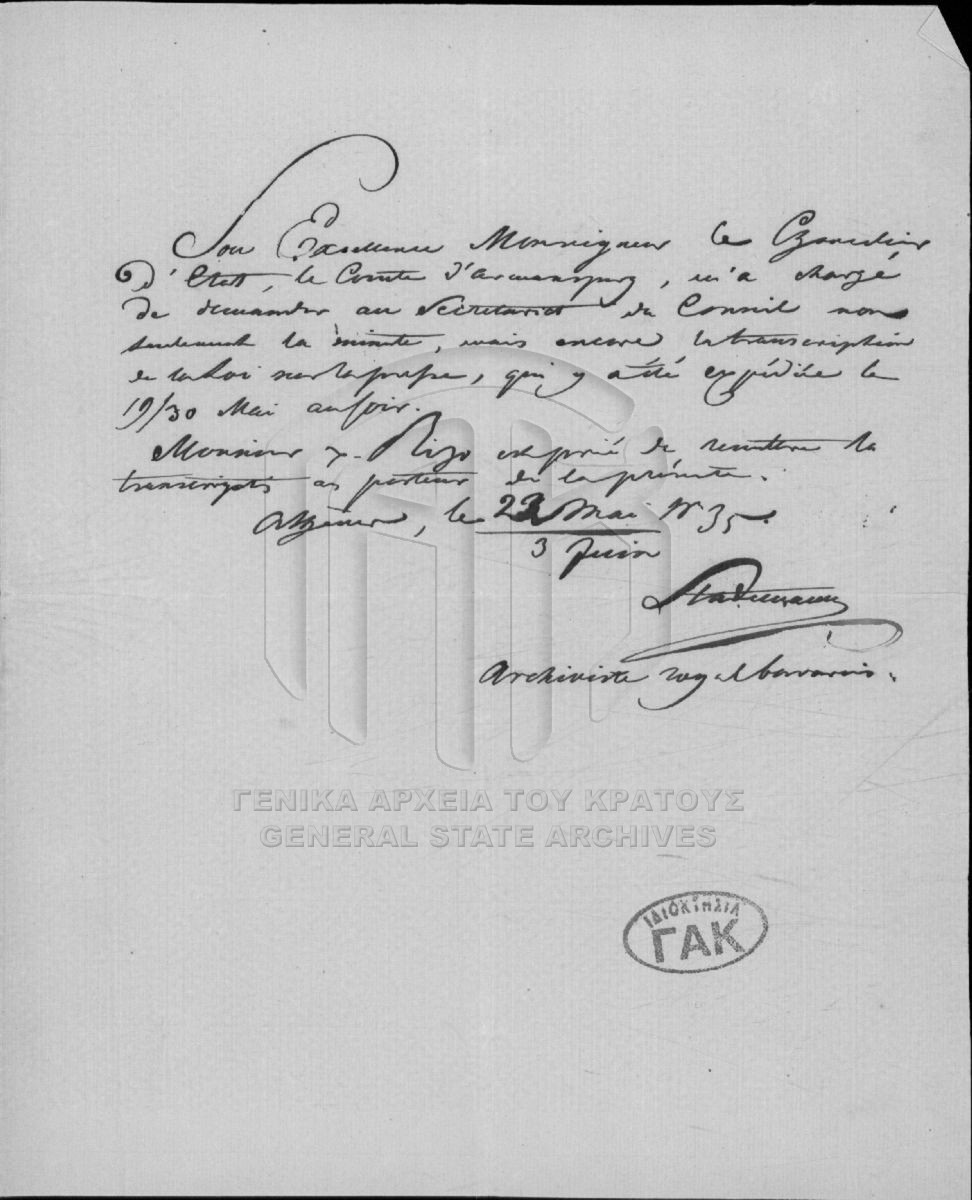 Son Excellence Monseigneur le Chancelier
d'Etat, le Comte d'Armansperg, m'a chargé
de demander au Secrétariat du Conseil non
seulement la minute, mais encore la transcription
de la Loi sur la presse, qui y a été expédiée le
19/30 Mai au soir.
Monsieur Rizo est prié de remettre la
au porteur de la présente.
Athènes, le 23 Mai 35.
3 Juin
Stademann
Archiviste royal bavarois.
ΓΕΝΙΚΑ ΑΡΧΕΙΑ ΤΟΥ ΚΡΑΤΟΥΣ
GENERAL STATE ARCHIVES
ΙΔΙΟΚΤΗΣΙΑ
ΓΑΚ